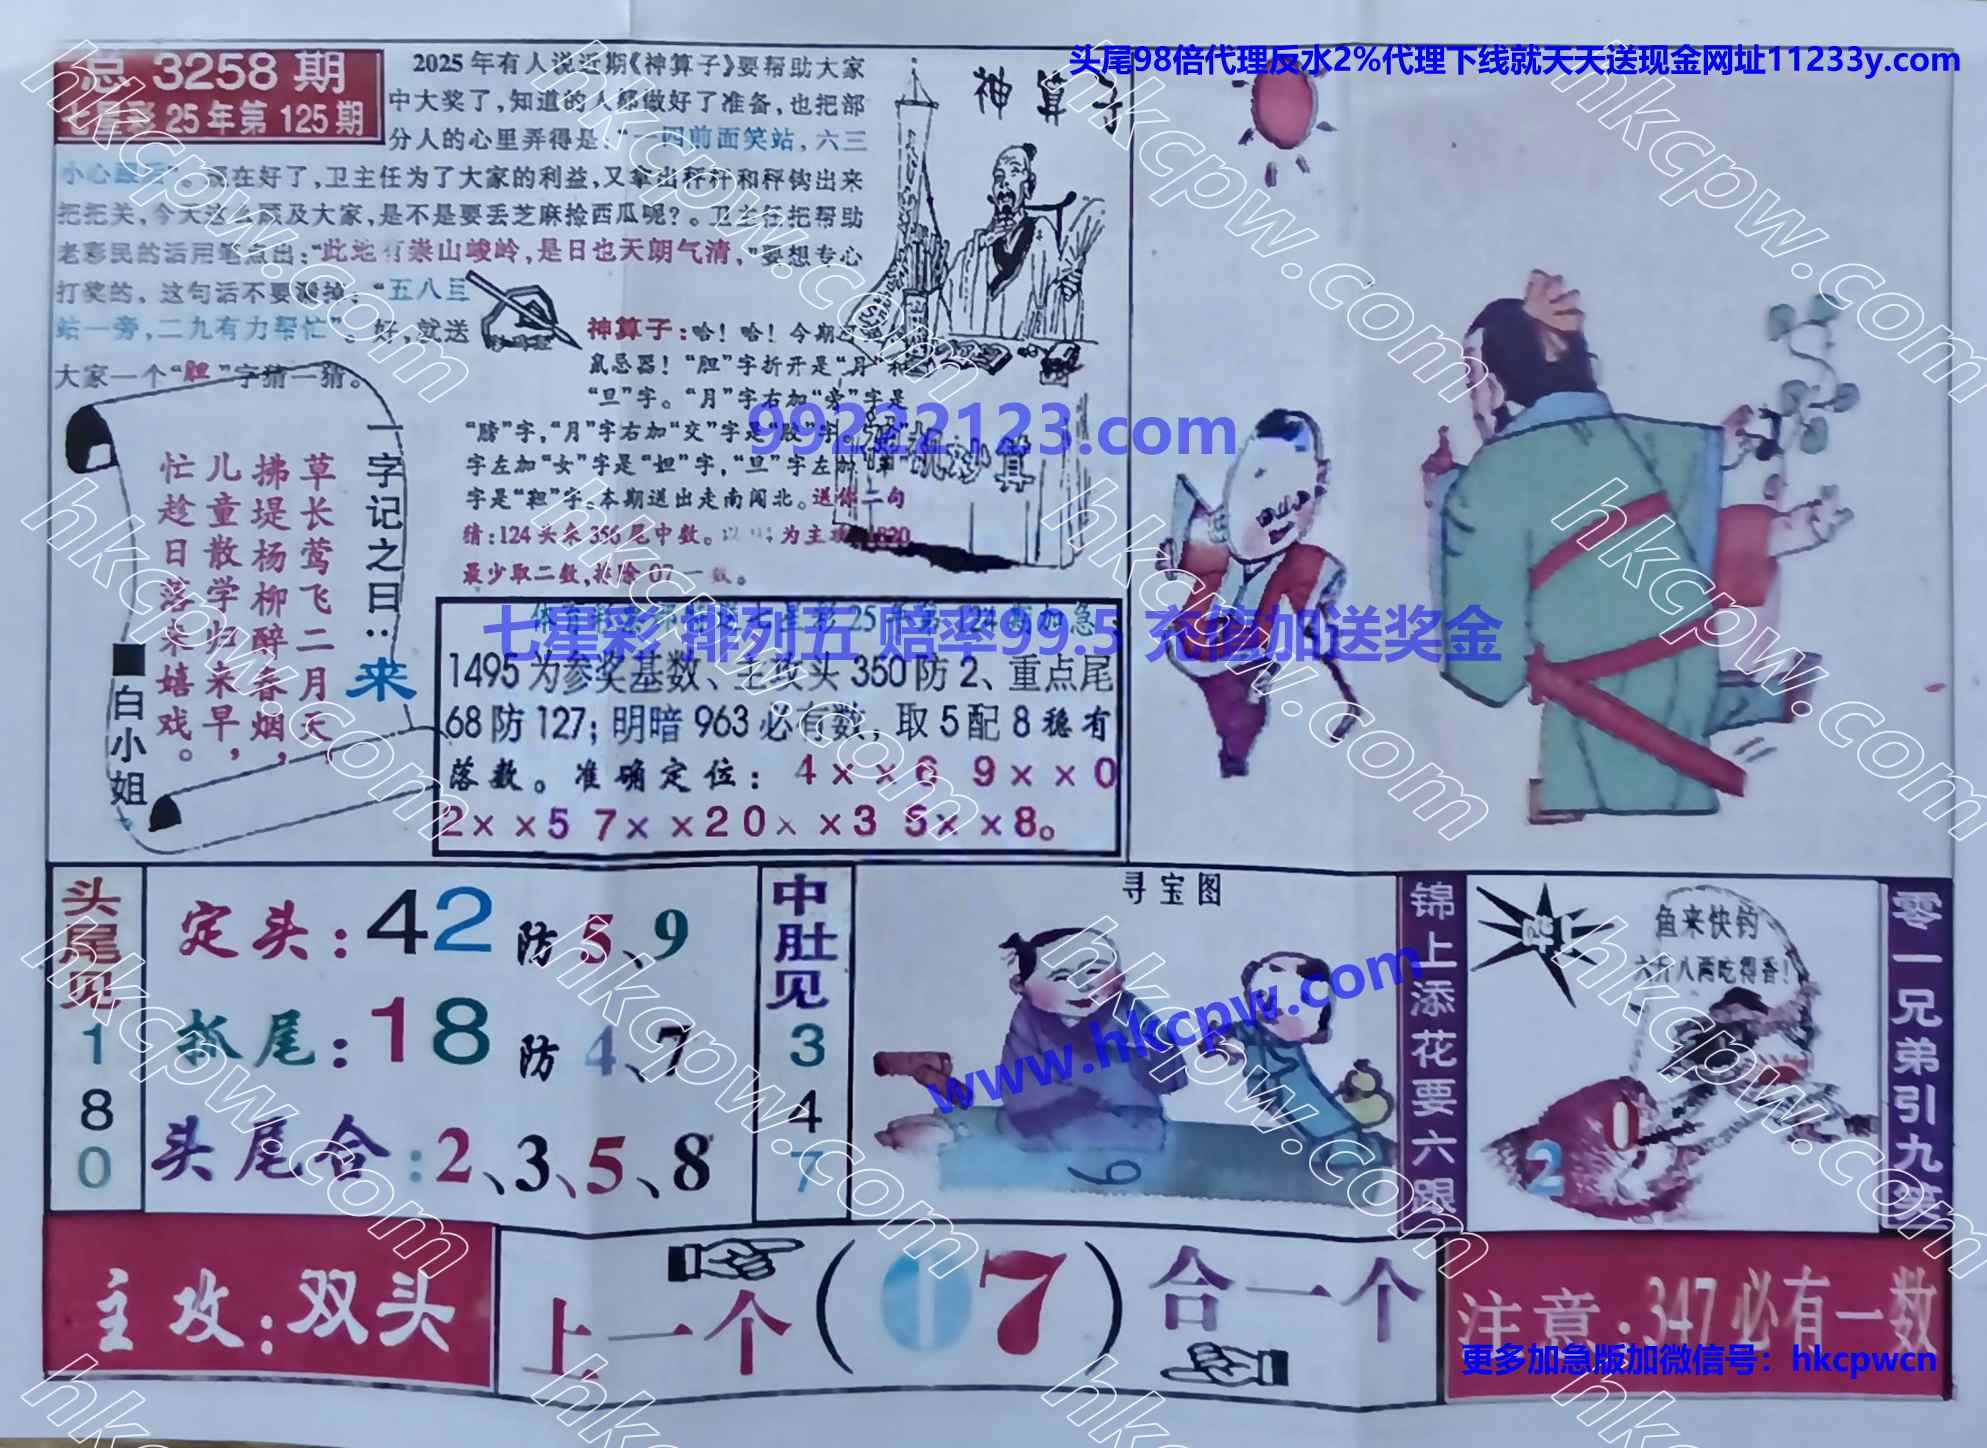 头尾98倍代理反水2%代理下线就天天送现金网址11233y.com
总 3258 期
七星彩 25年第125期
2025年有人说近期《神算子》要帮助大家
中大奖了,知道的人都做好了准备,也把部
分人的心里弄得是:“一四前面笑站,六三
小心
”。现在好了,卫主任为了大家的利益,又拿出秤杆和秤钩出来
把把关,今天这么顾及大家,是不是要丢芝麻捡西瓜呢?。卫主任把帮助
老彩民的活用笔点出:“此地有崇山峻岭,是日也天朗气清,”要想专心
打奖的,这句话不要漏掉:“五八三
站一旁,二九有力帮忙”。好,就送
大家一个“胆”字猜一猜。
神算子
神算子:哈!哈!今期
鼠忌器!“胆”字折开是“月”和
“旦”字。“月”字右加“旁”字是
“膀”字,“月”字右加“交”字是“胶”字。
字左加“女”字是“妲”字,“旦”字左加
字是“靼”字。本期送出走南闯北。送你二句
猜:124头来356尾中数。
为主攻 1820
最少取二数,排除07一数。
神机妙算
99232123.com
一字记之曰:来
草长莺飞二月天,
拂堤杨柳醉春烟,
儿童散学归来早,
忙趁日落来嬉戏。
■白小姐
七星彩 排列五 赔率99.5 充值加送奖金
七星彩25年第124期加急
1495为参奖基数、主攻头350防2、重点尾
68防127;明暗963必有数,取5配8稳有
落数。准确定位:4××6 9××0
2××5 7××2 0××3 5××8。
头尾见180
定头:42防5、9
抓尾:18防4、7
头尾合:2、3、5、8
中肚见347
寻宝图
9
www.hkcpw.com
锦上添花要六跟
鱼来快钓
六斤八两吃得香!
2
0
零一兄弟引九笑
主攻:双头
上一个(17)合一个
注意:347必有一数
更多加急版加微信号:hkcpwcn
hkcpw.com